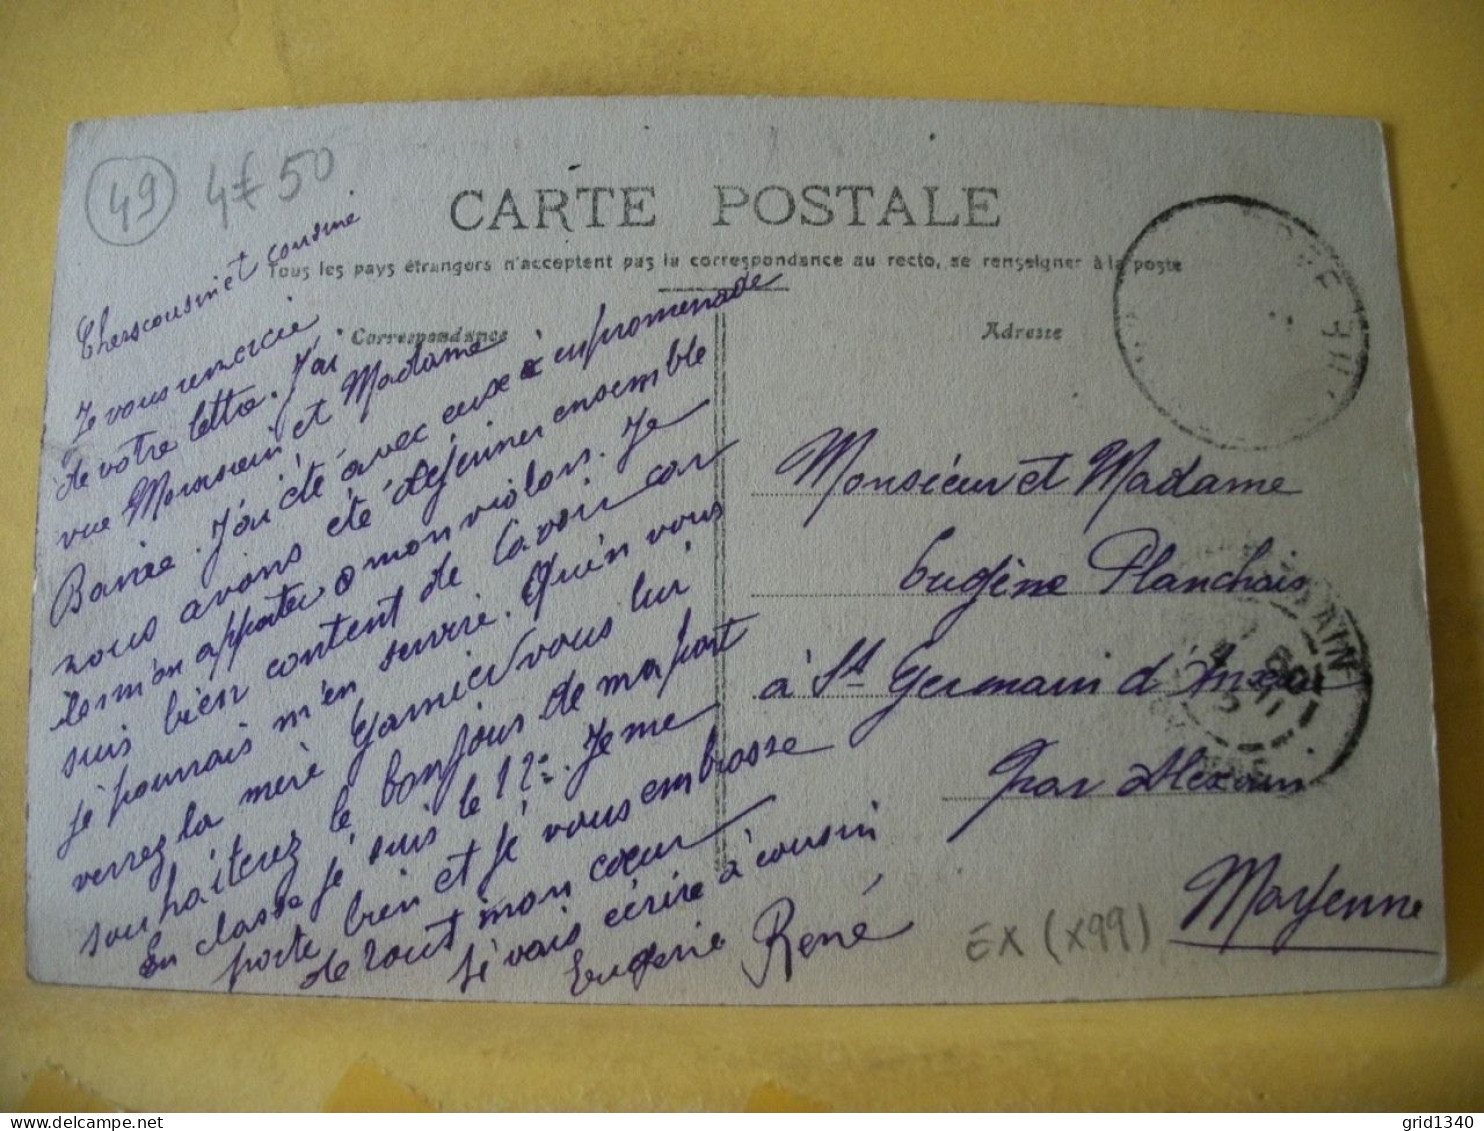 49 4€50
CARTE POSTALE
Tous les pays étrangers n'acceptent pas la correspondance au recto, se renseigner à la poste
Correspondance
Adresse
Chers cousin et cousine
Je vous remercie
de votre lettre. J'ai
vue Monsieur et Madame
J'ai été avec eux en promenade
nous avons été déjeuner ensemble
ils m'on apporter mon violon. Je
suis bien content de l'avoir car
je pourrais m'en servire. Quen vous
verrez la mère Garnier vous lui
souhaiterez le bonjour de ma part
En classe je suis le 12e. Je me
porte bien et je vous embrasse
de tout mon cœur
Je vais écrire à cousin
Eugène René
Monsieur et Madame
Eugène Planchais
à St Germain d'Anxure
par Alexain
Mayenne
EX (X99)
grid1340